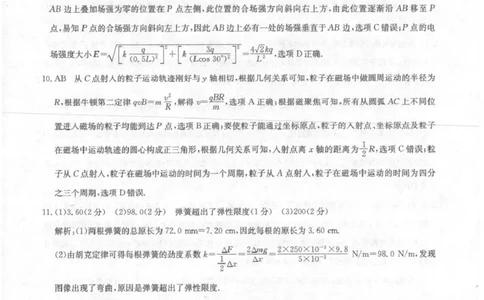 AB 边上叠加场强为零的位置在 P 点左侧,此位置的合场强方向斜向右上方,由此位置逐渐沿 AB 移至 P
点,易知 P 点的合场强方向斜向左上方,因此 AB 边上必有一处的场强垂直于 AB 边,选项 C 错误;P 点的电
场强度大小E=√[k q/(0.5L)²]²+[k 3q/(Lcos 30°)²]²=4√2kq/L²,选项 D 正确.
10. AB 从 C 点射入的粒子运动轨迹刚好与 y 轴相切,根据几何关系可知,粒子在磁场中做圆周运动的半径为
R,根据牛顿第二定律 qvB=m v²/R,解得 v=qBR/m,选项 A 正确;根据磁聚焦可知,所有从圆弧 AC 上不同位
置进入磁场的粒子均能到达 P 点,选项 B 正确;要使粒子能通过坐标原点,粒子的入射点、坐标原点及粒子
在磁场中运动轨迹的圆心构成正三角形,根据几何关系可知,入射点离 x 轴的距离为 1/2 R,选项 C 错误;粒
子从 C 点射入,粒子在磁场中运动的时间为一个周期,粒子从 A 点射入,粒子在磁场中运动的时间为四分
之三个周期,选项 D 错误.
11. (1)3.60(2 分) (2)98.0(2 分) 弹簧超出了弹性限度(1 分) (3)200(2 分)
解析:(1)两根弹簧的总原长为 72.0 mm=7.20 cm,因此每根的原长为 3.60 cm.
(2)由胡克定律可得每根弹簧的劲度系数 k=ΔF/(1/2 Δx)=2Δmg/Δx=2×250×10⁻³×9.8/5×10⁻² N/m=98.0 N/m,发现
图像出现了弯曲,原因是弹簧超出了弹性限度.